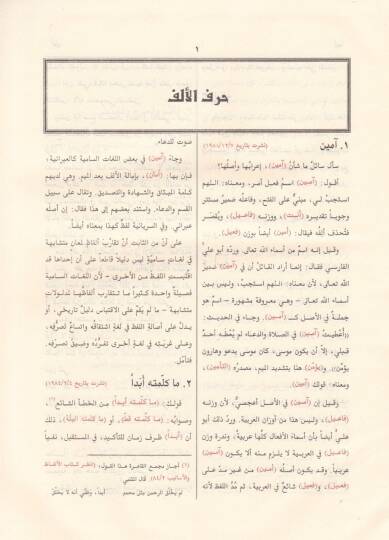 ١
حرف الألف
١. آمين (نشرت بتاريخ
سأل سائل ما شأن (آمين)، إعرابها وأصلها؟
أقول: (آمين) اسم فعل أمر، ومعناه: اللهم
استجبْ لي، مبنيّ على الفتح، وفاعله ضمير مستتر
وجوباً تقديره (أنت)، ووزنه (فاعيل)، ويُقصر
فتُحذف ألفه فيقال: (أمين) أيضاً بوزن (فعيل).
وقيل إنه اسم من أسماء الله تعالى. وردّه أبو عليّ
الفارسي فقال: إنما أراد القائل أن في (آمين) ضميرَ
الله تعالى، لأن معناه: اللهم استجبْ، وليس بين
أسماء الله تعالى - وهي معروفة مشهورة - اسم هو
جملة في الأصل كـ (آمين). وجاء في الحديث:
((أُعطيتُ (آمين) في الصلاة والدعاء لم يُعْطَه أحدٌ
قبلي، إلا أن يكون موسى، كان موسى يدعو وهارون
يؤمّن)). و(يؤمّن) هنا بتشديد الميم، مصدره (التأمين)،
ومعناه: قولك (آمين).
وقيل إن (آمين) في الأصل أعجميّ، لأن وزنه
(فاعيل)، وليس هذا من أوزان العربية. وردّ ذلك أبو
عليّ أيضاً بأن أسماء الأفعال كلّها عربية، وندرة وزن
(فاعيل) في العربية لا يلزم منه ألا يكون (آمين)
عربياً. وقد يكون أصلُه (أمين) من غير مدّ على
(فعيل)، و(فعيل) شائعٌ في العربية، ثم مُدّ اللفظ لأنه
صوت للدعاء.
وجاء (آمين) في بعض اللغات السامية كالعبرانية،
فإن بها: (آمان)، بإمالة الألف بعد الميم. وهي لديهم
كلمة الميثاق والشهادة والتصديق. وتقال على سبيل
القسم والدعاء. واستند بعضهم إلى هذا فقال: إن أصله
عبراني. وفي السريانية لفظ كهذا بمعناه أيضاً.
على أنّ من الثابت أنّ تقاربَ ألفاظٍ لمعانٍ متشابهة
في لغاتٍ ساميّةٍ ليس دليلاً قاطعاً على أن إحداها قد
اقتبست اللفظ من الأخرى - لأن اللغات السامية
فصيلةٌ واحدة كثيراً ما تتقارب ألفاظها لمدلولات
متشابهة - ما لم يقُم على الاقتباس دليل تاريخي، أو
يدلّ على أصالة اللفظ في لغةٍ اشتقاقُه واتساعُ تصرُّفه،
وعلى غربته في لغةٍ أخرى تفرُّدُه وضيقُ تصرّفه.
فتأمل.
٢. ما كلّمته أبداً (نشرت بتاريخ
قولك: (ما كلّمته أبداً) من الخطأ الشائع(١)،
وصوابه: (ما كلّمته قطّ)، أو (ما كلمته البتّة)، ذلك
أن (أبداً) ظرف زمان للتأكيد، في المستقبل، نفياً
(١) أجاز مجمع القاهرة هذا القول: (انظر كتاب الألفاظ
والأساليب ٨٤/٢). قال المثني
لم يخلُق الرحمن مثل محمد أبداً، وظنّي أنه لا يخلُقُ